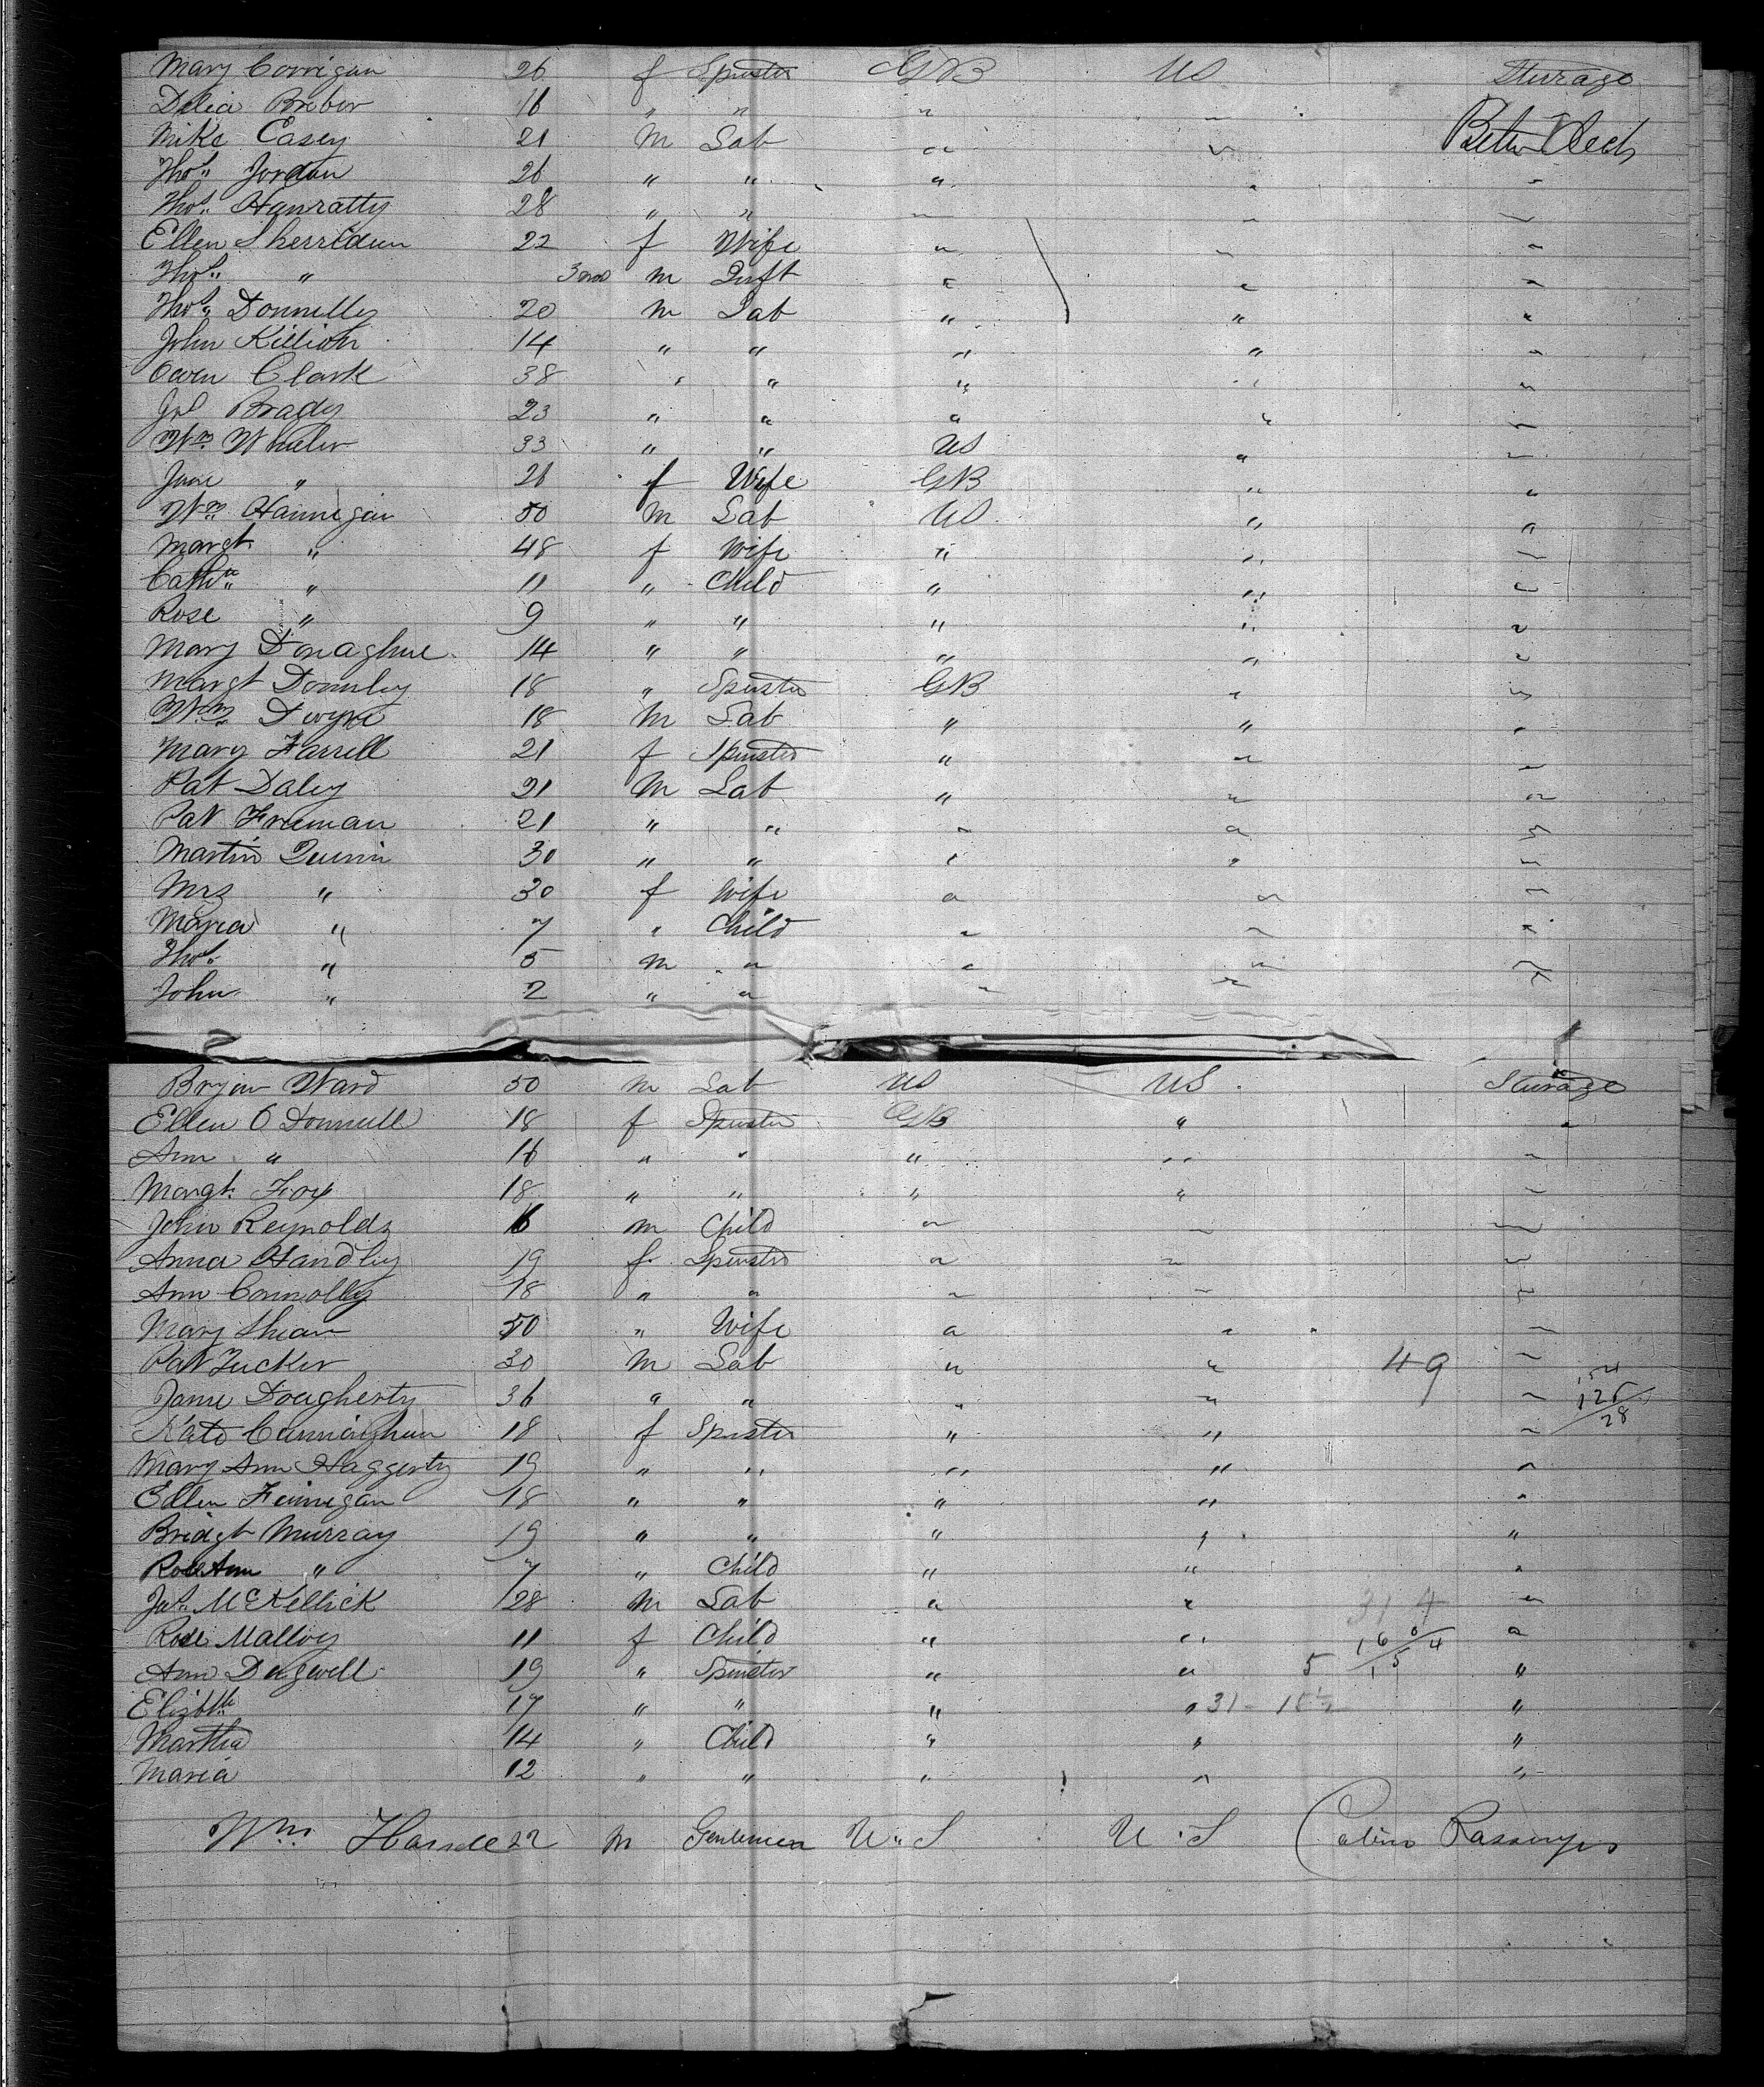 Mary Corrigan 26 f Spinster GB US Sturage
Delia 16 " " " "
Mike Casey 21 M Lab " " Betw Deck
Thos Jordan 26 " " " " "
Thos Hanratty 28 " " " " "
Ellen Sherridan 22 f Wife " " "
Thos " 3 mo m Inft " " "
Thos Donnelly 20 m Lab " " "
John Killion 14 " " " " "
Owen Clark 38 " " " " "
Brady 23 " " " " "
Wm Whaler 33 " " US " "
Jane " 26 f Wife GB " "
Wm Hannigan 50 M Lab US " "
Margt " 48 f Wife " " "
Cathn " 11 " Child " " "
Rose " 9 " " " " "
Mary Donaghue 14 " " " " "
Margt Donnley 18 " Spinster GB " "
Wm Dwyre 18 M Lab " " "
Mary Farrell 21 f Spinster " " "
Pat Daley 21 M Lab " " "
Pat Freeman 21 " " " " "
Martin Quinn 30 " " " " "
Mrs " 30 f Wife " " "
Maria " 7 " Child " " "
Thos " 5 m " " " "
John " 2 " " " " "
Bryan Ward 50 m Lab US US Sturage
Ellen O Donnell 18 f Spinster GB " "
Ann " 16 " " " " "
Margt Fox 18 " " " " "
John Reynolds 16 m Child " " "
Anna Handley 19 f Spinster " " "
Ann Connolly 18 " " " " "
Mary Shean 50 " Wife " " "
Pat Tucker 30 M Lab " " 49 "
Jame Dougherty 36 " " " " " 125
Kate Cunningham 18 f Spinster " " " 28
Mary Ann Haggerty 19 " " " " "
Ellen Finnegan 18 " " " " "
Bridgt Murray 19 " " " " "
Rose Ann " 7 " Child " " "
Jas McKellick 28 M Lab " " 31 4 "
Rose Malloy 11 f Child " " "
Ann 19 " Spinster " " 5 15 "
Elizbth 17 " " " " 31 "
Martha 14 " Child " " "
Maria 12 " " " " "
Wm 22 m Gentleman U.S U.S Cabin Passenger